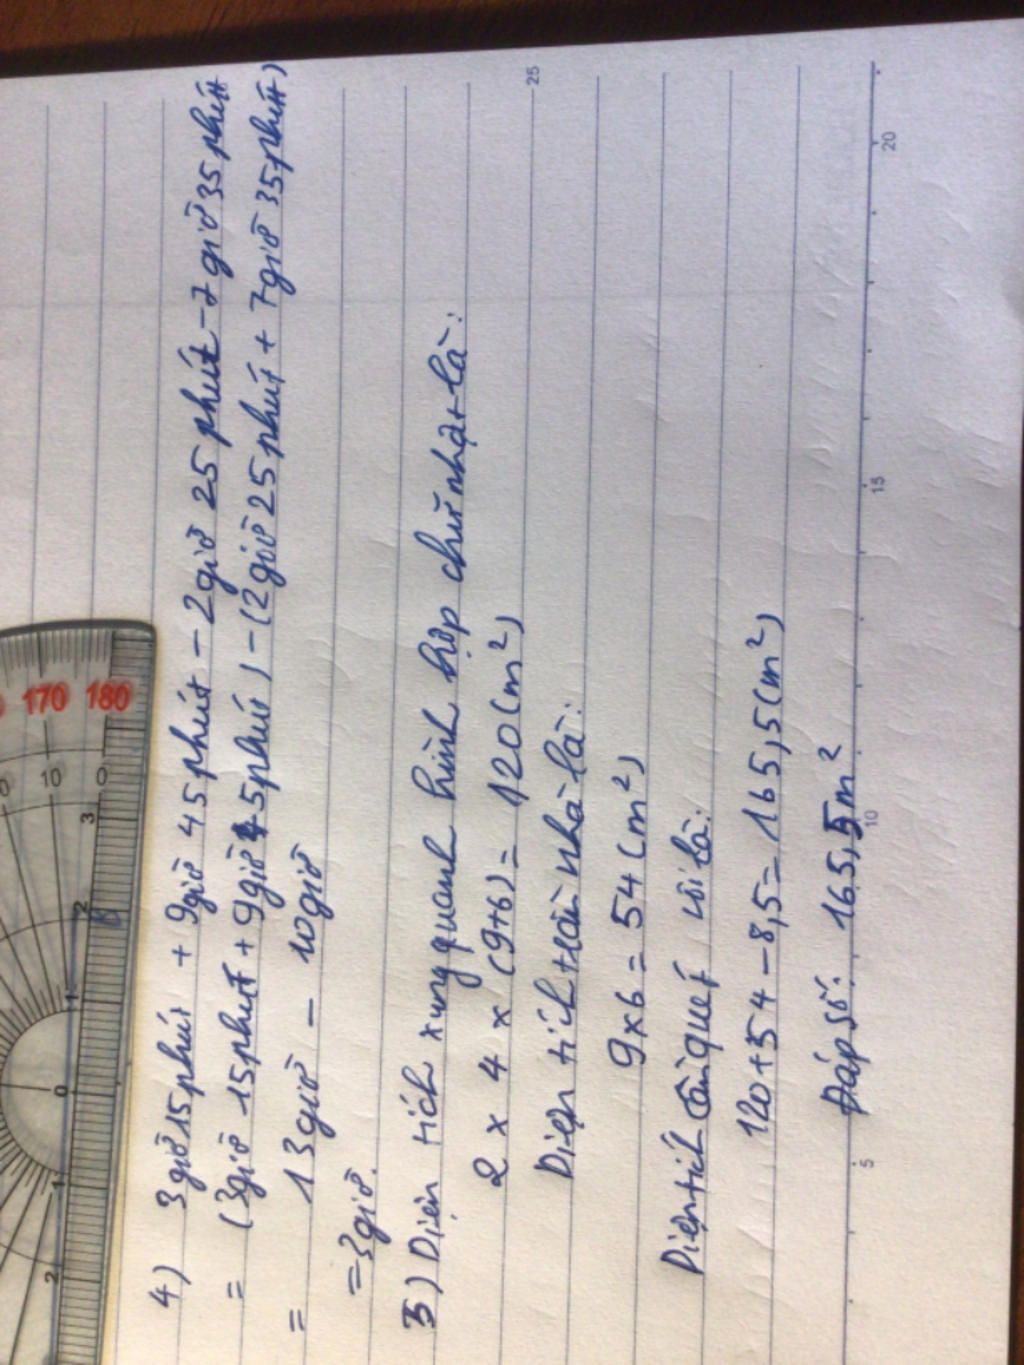 4) 3giờ 15phút + 9giờ 45phút - 2giờ 25phút - 7giờ 35phút
= (3giờ 15phút + 9giờ 45phút) - (2giờ 25phút + 7giờ 35phút)
= 13giờ - 10giờ
= 3giờ.
5) Diện tích xung quanh hình hộp chữ nhật là:
2 x 4 x (9+6) = 120 (m²)
Diện tích trần nhà là:
9x6 = 54 (m²)
Diện tích cần quét vôi là:
120+54-8,5=165,5(m²)
Đáp số: 165,5m²
170 180
10 0
3
2
1
0
1
2
5
10
15
20
25